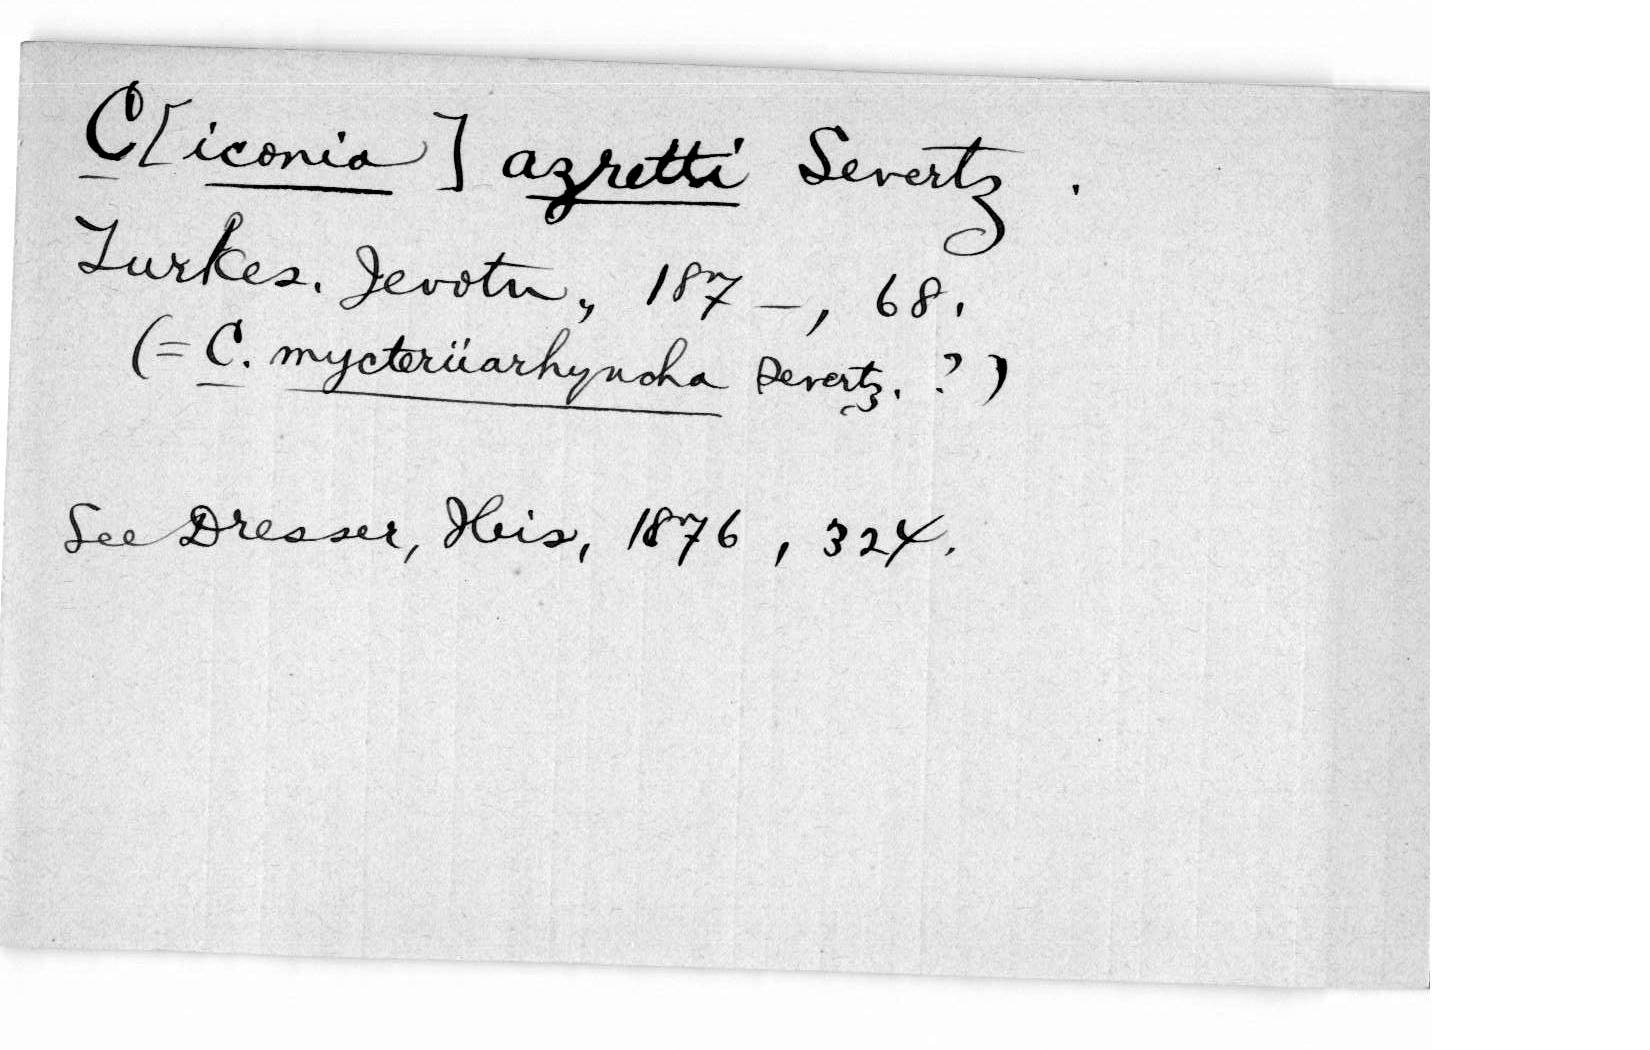 C[iconia] azretti Severtz.
Turkes. Jevotn., 187-, 68.
(= C. mycteriiarhyncha Severtz. ?)
See Dresser, Ibis, 1876, 324.